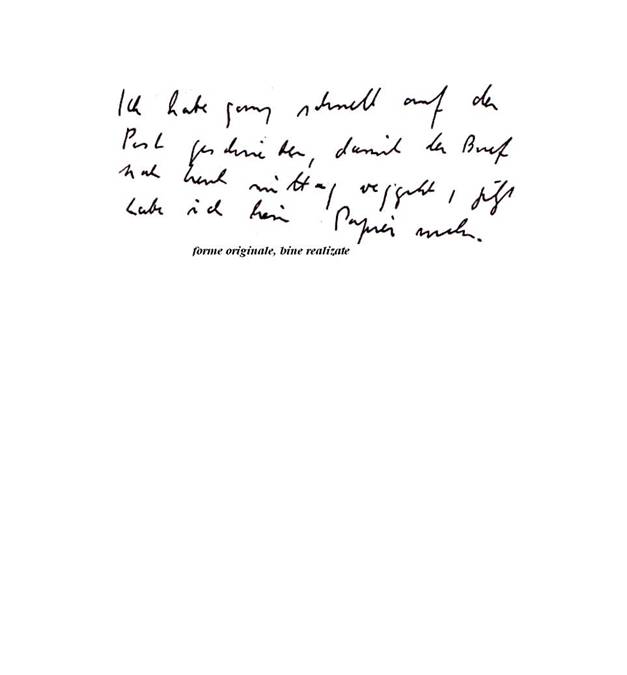 Ich habe ganz schnell auf der
Post geschrieben, damit der Brief
noch heute mittag weggeht, jetzt
habe ich kein Papier mehr.
forme originale, bine realizate